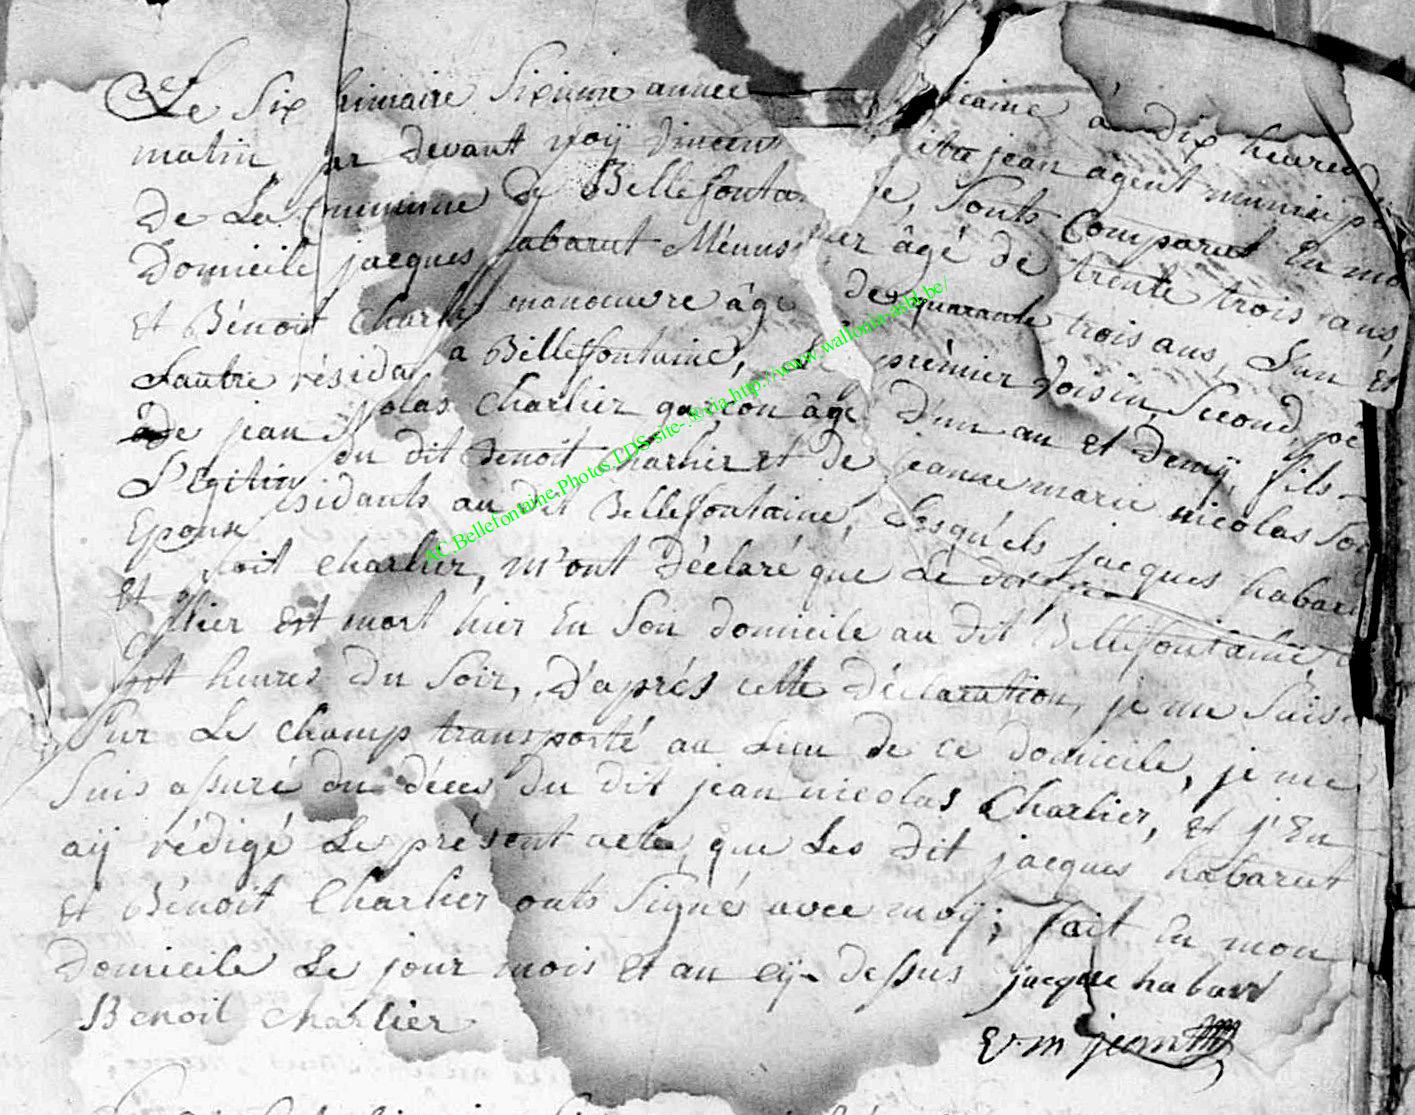 Le Six frimaire Sixieme année icaine à dix heures
matin, par devant moÿ Vincent jean agent municip
De La Commune De Bellefonta e, Sonts Comparut En mo
Domicile jacques habarut Ménusier âgé de trente trois ans,
et Bénoit Charlier manouvre âgé de quarante trois ans, L'un et
L'autre résida a Bellefontaine, Le prémier Voisin, Second, pé
de jean olas Charlier garçon âgé D'un an et Demÿ, fils
L'Egitim du dit Benoit Charlier et de jeanne marie nicolas Son
Epouse sidants au dit Bellefontaine, Lesquels jacques habaru
Et oit Charlier, m'ont Déclaré que Le
lier Est mort hier En Son domicile au dit Bellefontaine
heures Du Soir, D'aprés cette Déclaration, je me Suis
Sur Le Champ transporté au Lieu de ce Domicile, je me
Suis assuré du déces Du dit jean nicolas Charlier, et j'En
aÿ rédigé Le présent acte, que Les Dit jacques habarut
Et Bénoit Charlier onts Signés avec moÿ; fait En mon
Domicile Le jour mois et an cÿ-dessus jacque habart
Benoit Charlier
V m jean
AC.Bellefontaine.Photos LDS site- via http://www.wallonia-asbl.be/